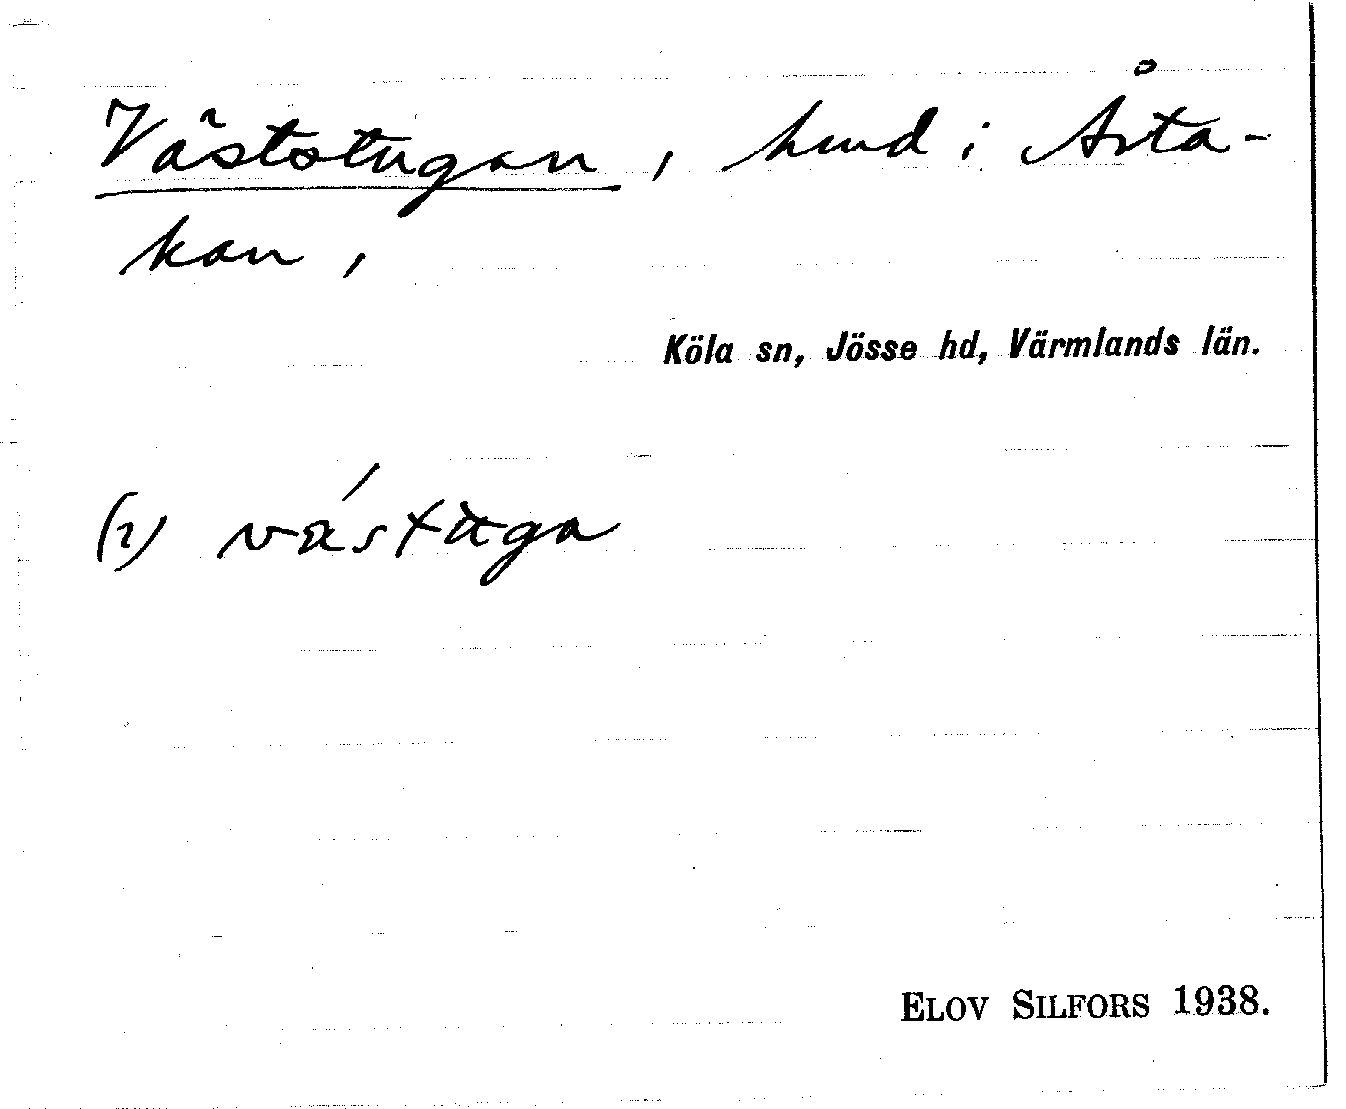 Väststugan, hmd i Årta-
kan,
Köla sn, Jösse hd, Värmlands län.
(1) västuga
ELOV SILFORS 1938.